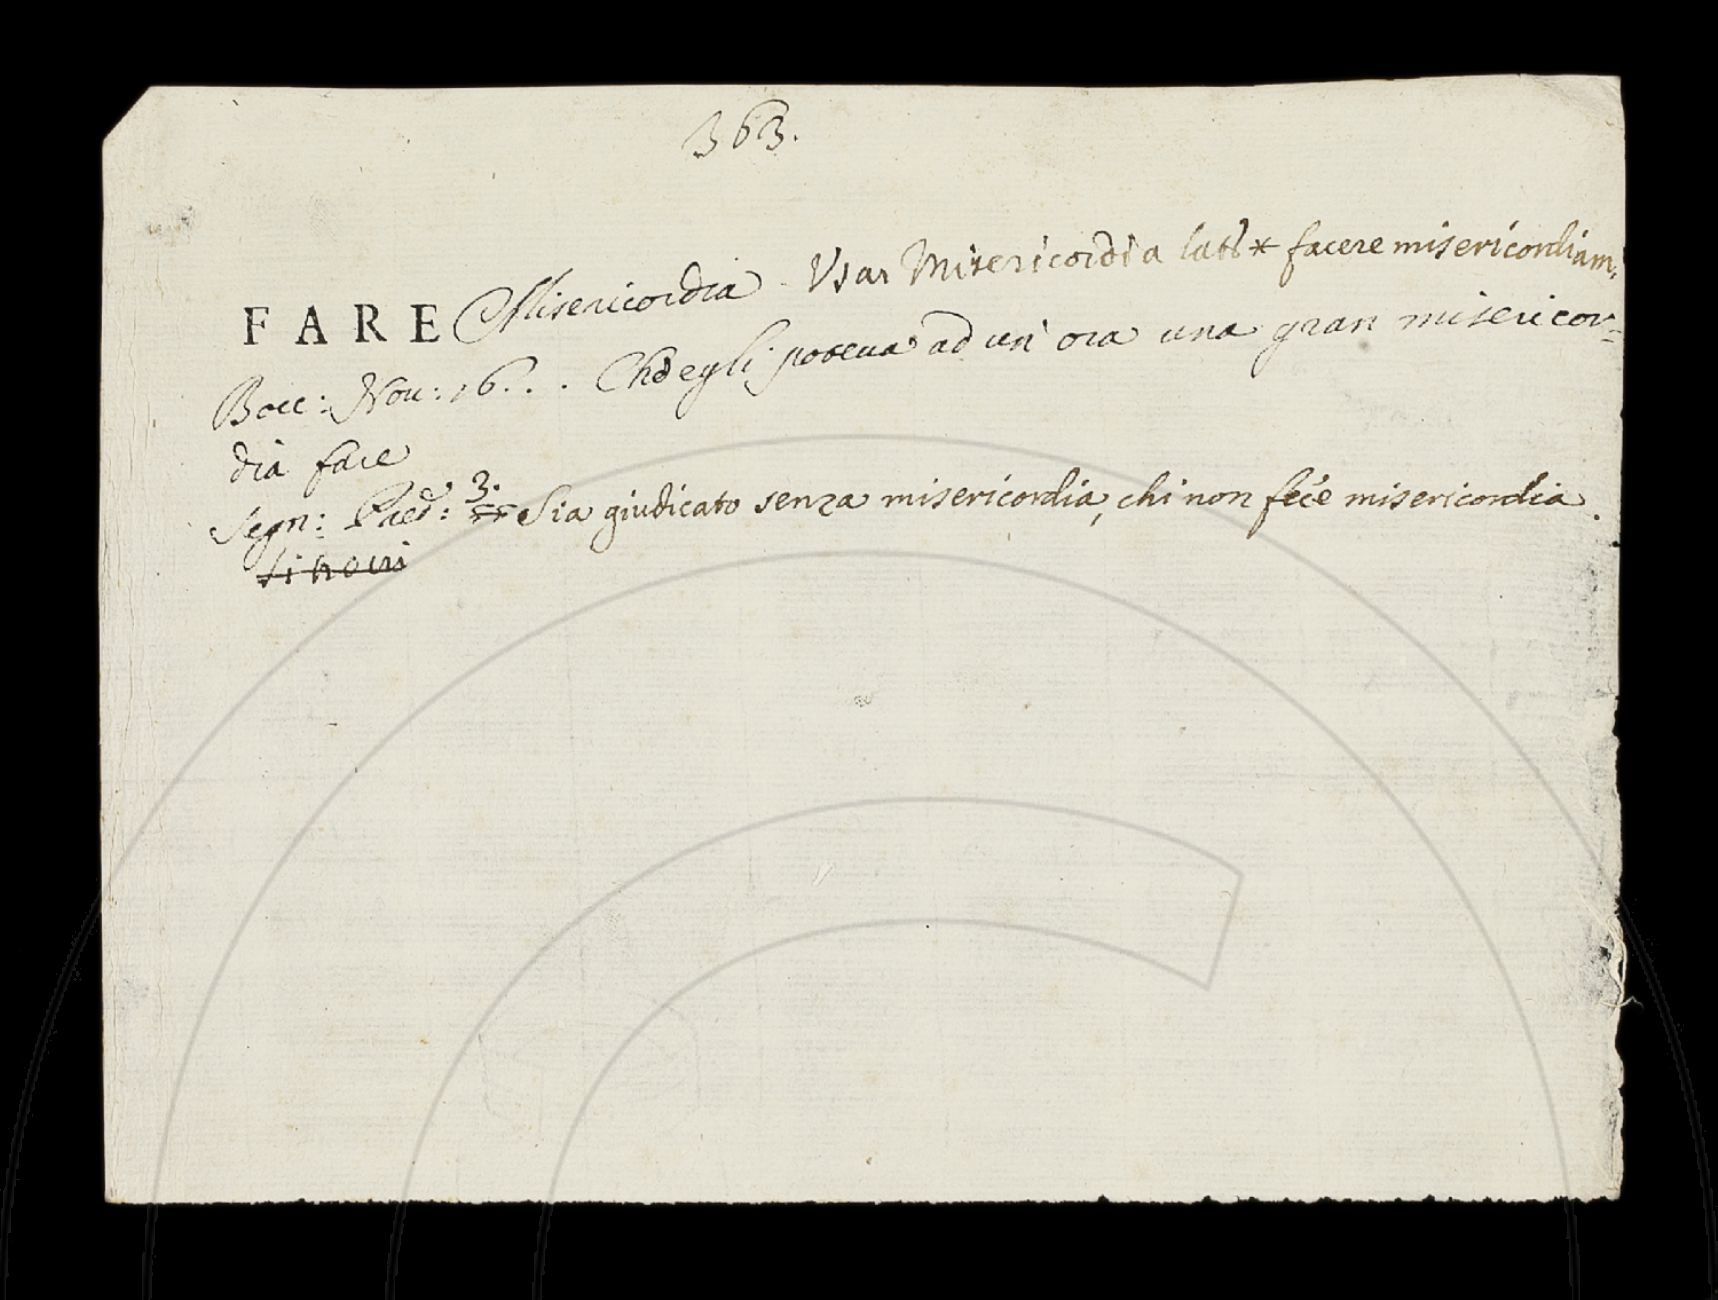 363.
FARE Misericordia. Usar Misericordia latt * facere misericordiam.
Bocc: Nov: 16. . . Ch'egli poteva ad un' ora una gran misericor-
dia fare
Segn: Pred: 3. Sia giudicato senza misericordia, chi non fece misericordia.